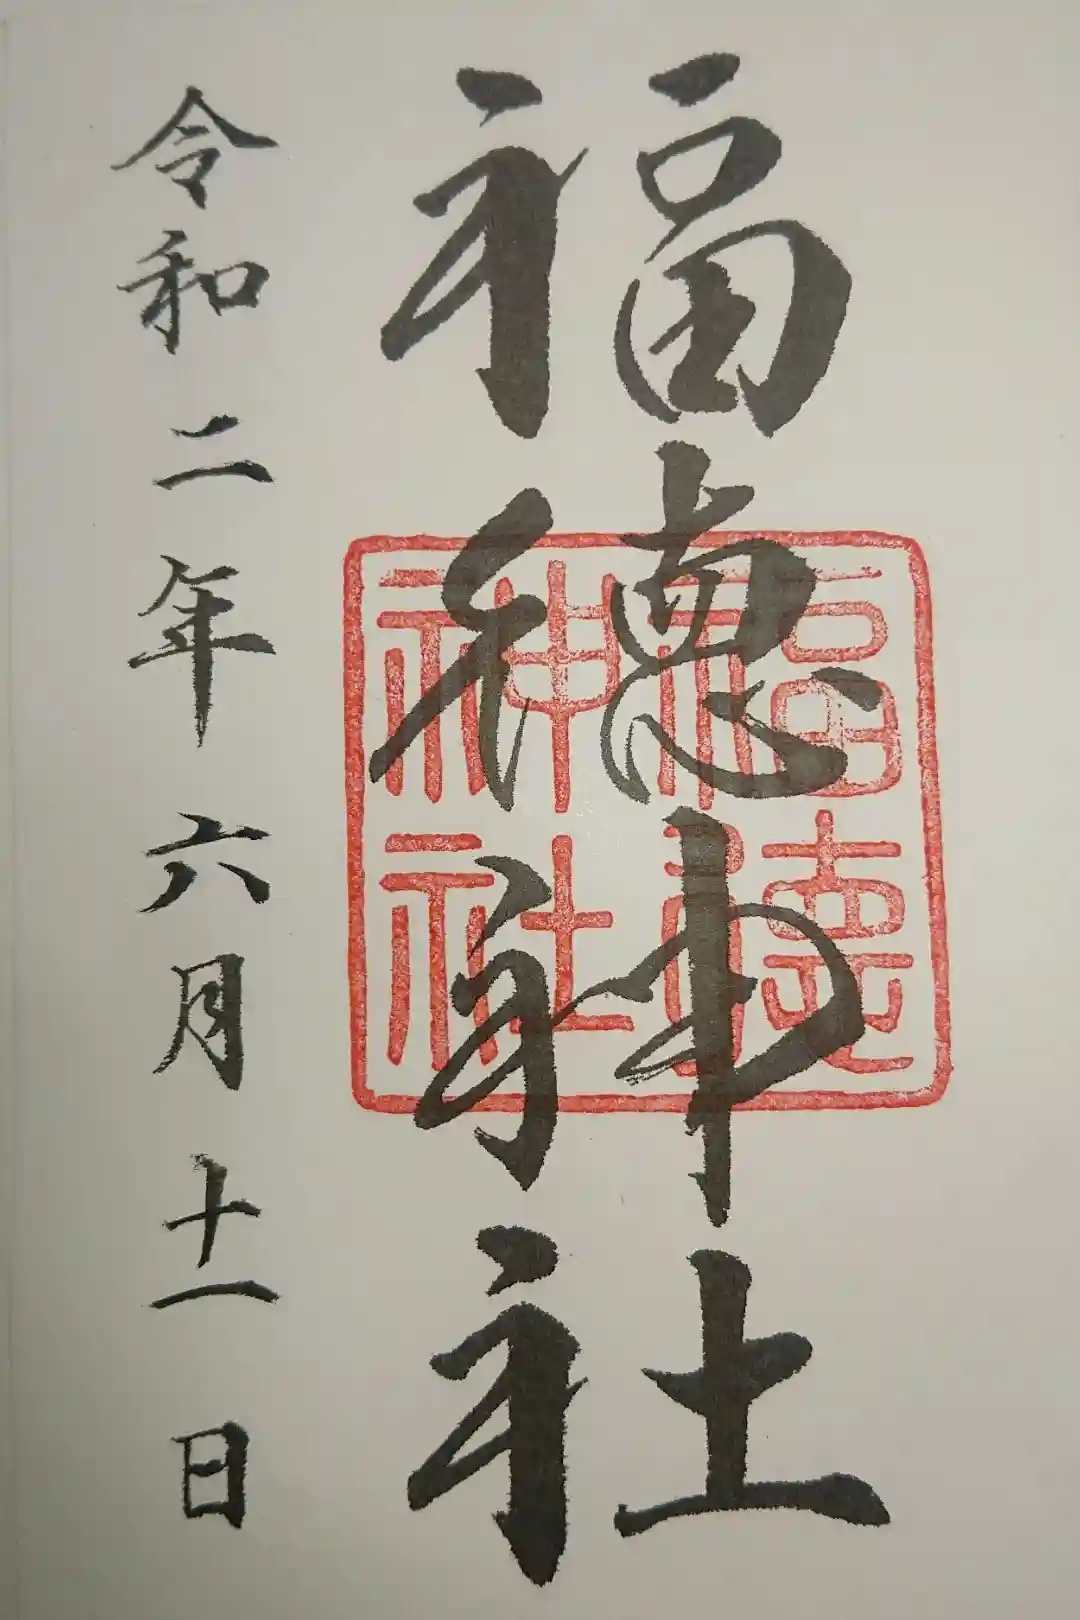 福徳神社
福徳神社
令和二年六月十一日